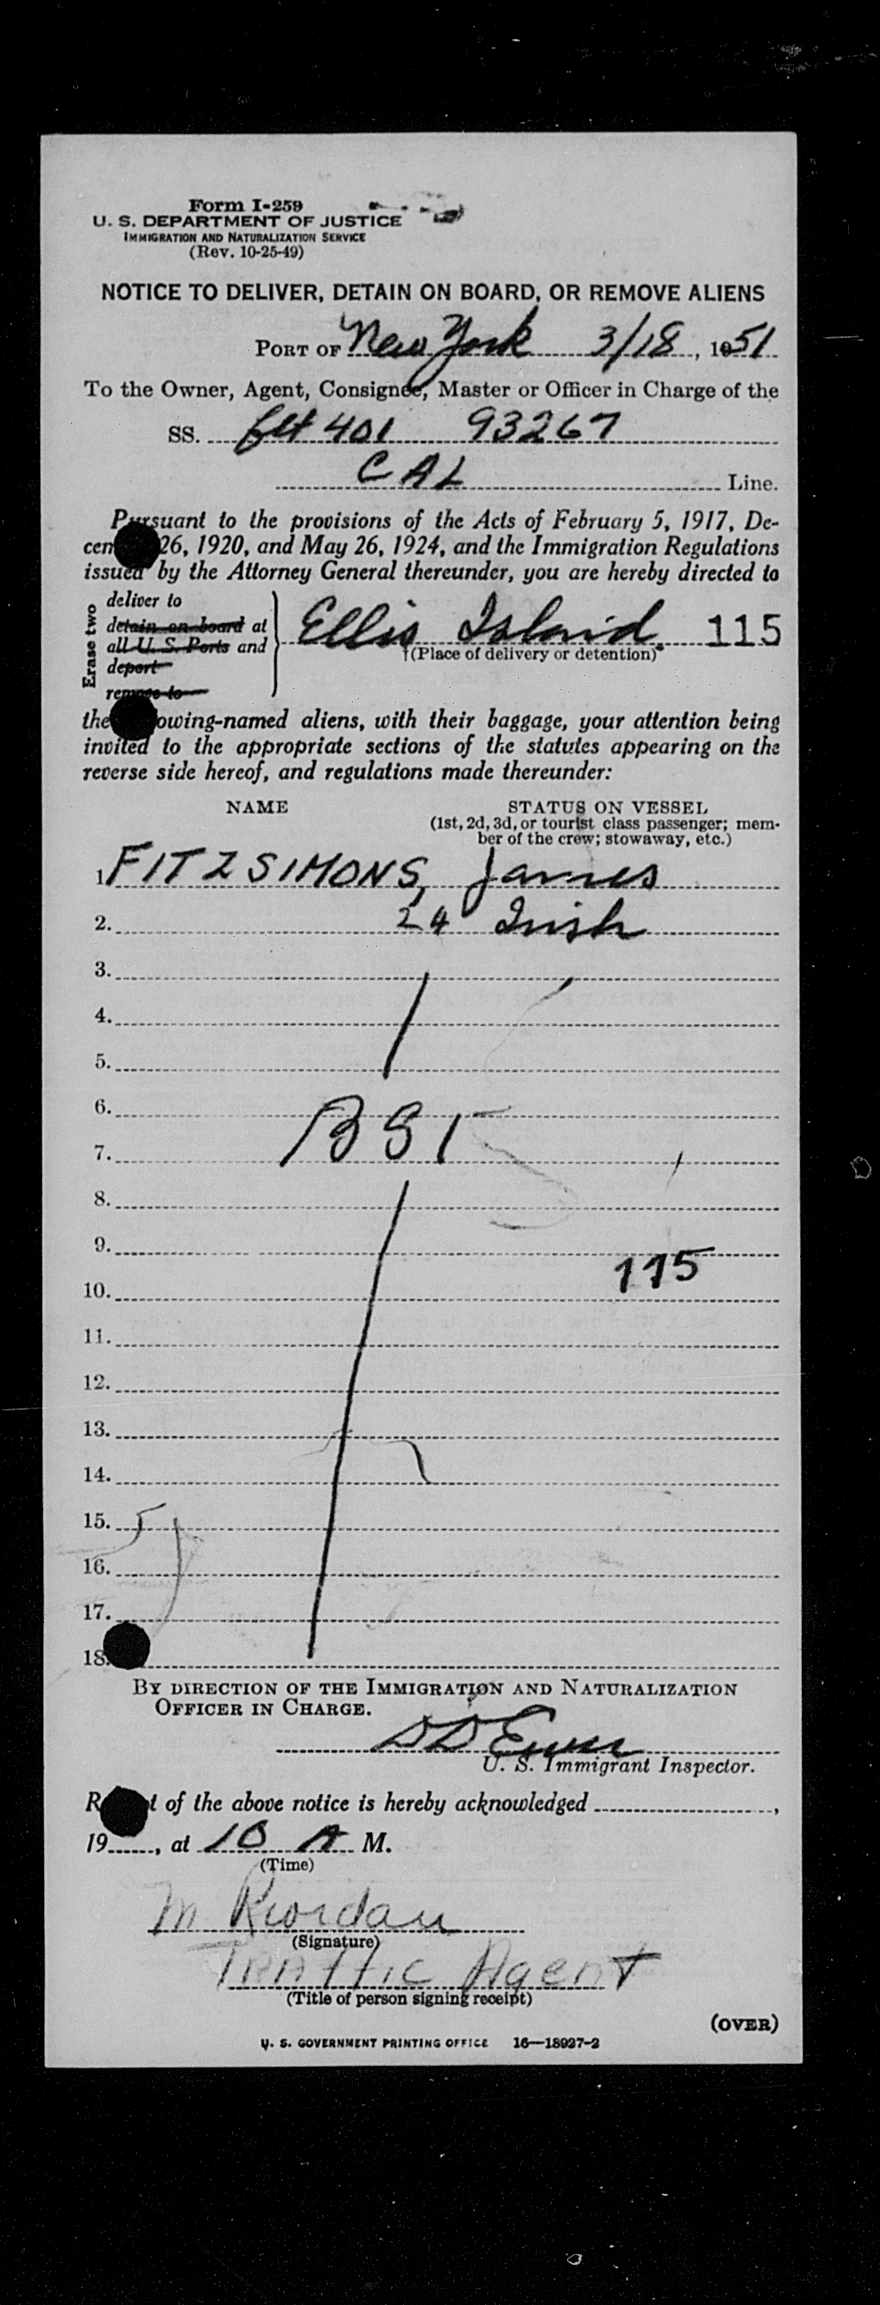 Form I-259
U. S. DEPARTMENT OF JUSTICE
IMMIGRATION AND NATURALIZATION SERVICE
(Rev. 10-25-49)
NOTICE TO DELIVER, DETAIN ON BOARD, OR REMOVE ALIENS
PORT OF New York 3/18, 1951
To the Owner, Agent, Consignee, Master or Officer in Charge of the
SS. flt 401 93267
CAL Line.
Pursuant to the provisions of the Acts of February 5, 1917, De-
cem 26, 1920, and May 26, 1924, and the Immigration Regulations
issued by the Attorney General thereunder, you are hereby directed to
Erase two
deliver to
detain on board at
all U. S. Ports and
deport
remove to
Ellis Island 115
†(Place of delivery or detention)*
the owing-named aliens, with their baggage, your attention being
invited to the appropriate sections of the statutes appearing on the
reverse side hereof, and regulations made thereunder:
NAME STATUS ON VESSEL
(1st, 2d, 3d, or tourist class passenger; mem-
ber of the crew; stowaway, etc.)
1 FITZSIMONS, James
2. 24 Irish
3.
4.
5.
6.
BSI
7.
8.
9.
115
10.
11.
12.
13.
14.
15.
16.
17.
18.
BY DIRECTION OF THE IMMIGRATION AND NATURALIZATION
OFFICER IN CHARGE.
D D
U. S. Immigrant Inspector.
R t of the above notice is hereby acknowledged ,
19 , at 10 A M.
(Time)
M Riordan
(Signature)
Traffic Agent
(Title of person signing receipt)
(OVER)
U. S. GOVERNMENT PRINTING OFFICE 16—18927-2